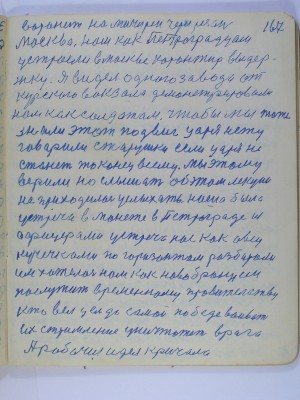 164
Москва, нам как Петроградцам
устроели в Москве карантир выдер-
жку. Я видел одного завода от
курского вокзала демонстрировали
нам как солдатам, чтобы мы тоже
знали этот подвиг царя нету
говорили старушки если царя не
станет то конец всему. Мы этому
верили но слышат об этом лекции
не приходилос услыхать наша была
встреча в Монете в Петрограде и
офицерами устреча нас как овец
кучечками по горизонтам разбирали
им хателос нам как новобранцы
послужит временному правителству
кто вел цел до самой победе воиват
их стримление уничтожит врага
А рабочие идея кричала